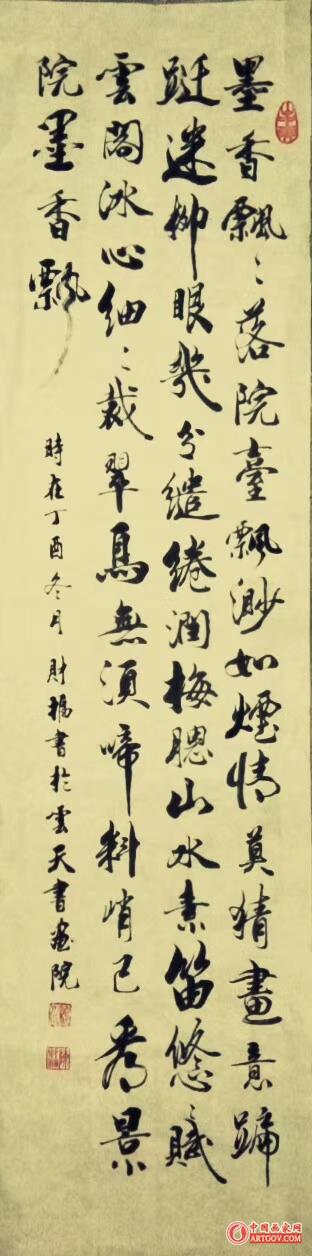 墨香飄飄落院臺飄渺如煙情莫猜畫意蹁
跹迷柳眼幾分繾綣潤梅腮山水素笛悠悠賦
雲閣冰心細細裁翠鳥無須啼料峭已為景
院墨香飄
時在丁酉冬月財揚書於雲天書畫院
中国画家网
ARTGOV.COM